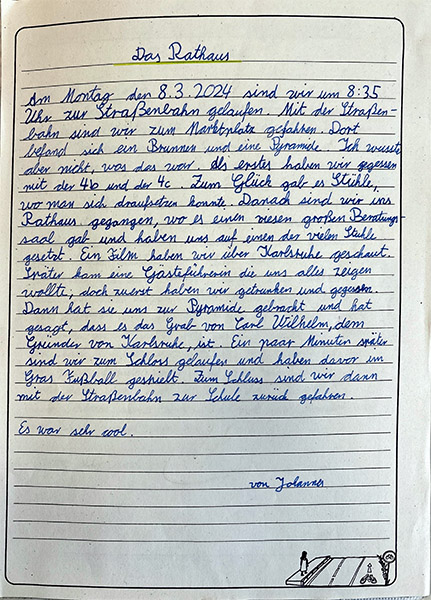 Das Rathaus
Am Montag den 8.3.2024 sind wir um 8:35
Uhr zur Straßenbahn gelaufen. Mit der Straßen-
bahn sind wir zum Marktplatz gefahren. Dort
befand sich ein Brunnen und eine Pyramide. Ich wusste
aber nicht, was das war. Als erstes haben wir gegessen
mit der 4b und der 4c. Zum Glück gab es Stühle,
wo man sich draufsetzen konnte. Danach sind wir ins
Rathaus gegangen, wo es einen riesen großen Beratungs-
saal gab und haben uns auf einen der vielen Stühle
gesetzt. Ein Film haben wir über Karlsruhe geschaut.
Später kam eine Gästeführerin die uns alles zeigen
wollte, doch zuerst haben wir getrunken und gegessen.
Dann hat sie uns zur Pyramide gebracht und hat
gesagt, dass es das Grab von Carl Wilhelm, dem
Gründer von Karlsruhe, ist. Ein paar Minuten später
sind wir zum Schloss gelaufen und haben davor im
Gras Fußball gespielt. Zum Schluss sind wir dann
mit der Straßenbahn zur Schule zurück gefahren.
Es war sehr cool.
von Johannes